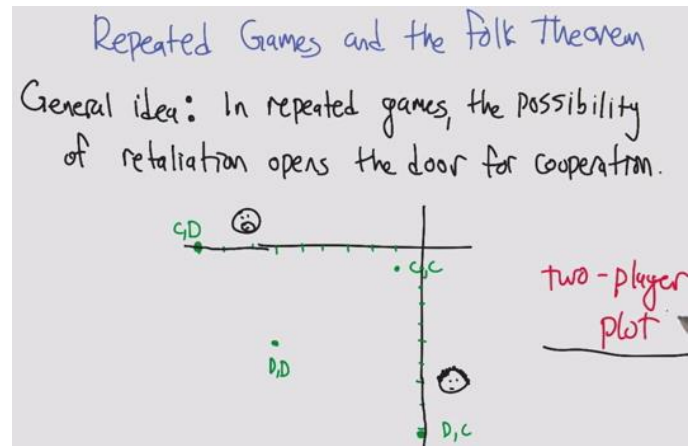 Repeated Games and the Folk Theorem
General idea: In repeated games, the possibility
of retaliation opens the door for cooperation.
C,D
C,C
two-player
plot
D,D
D,C